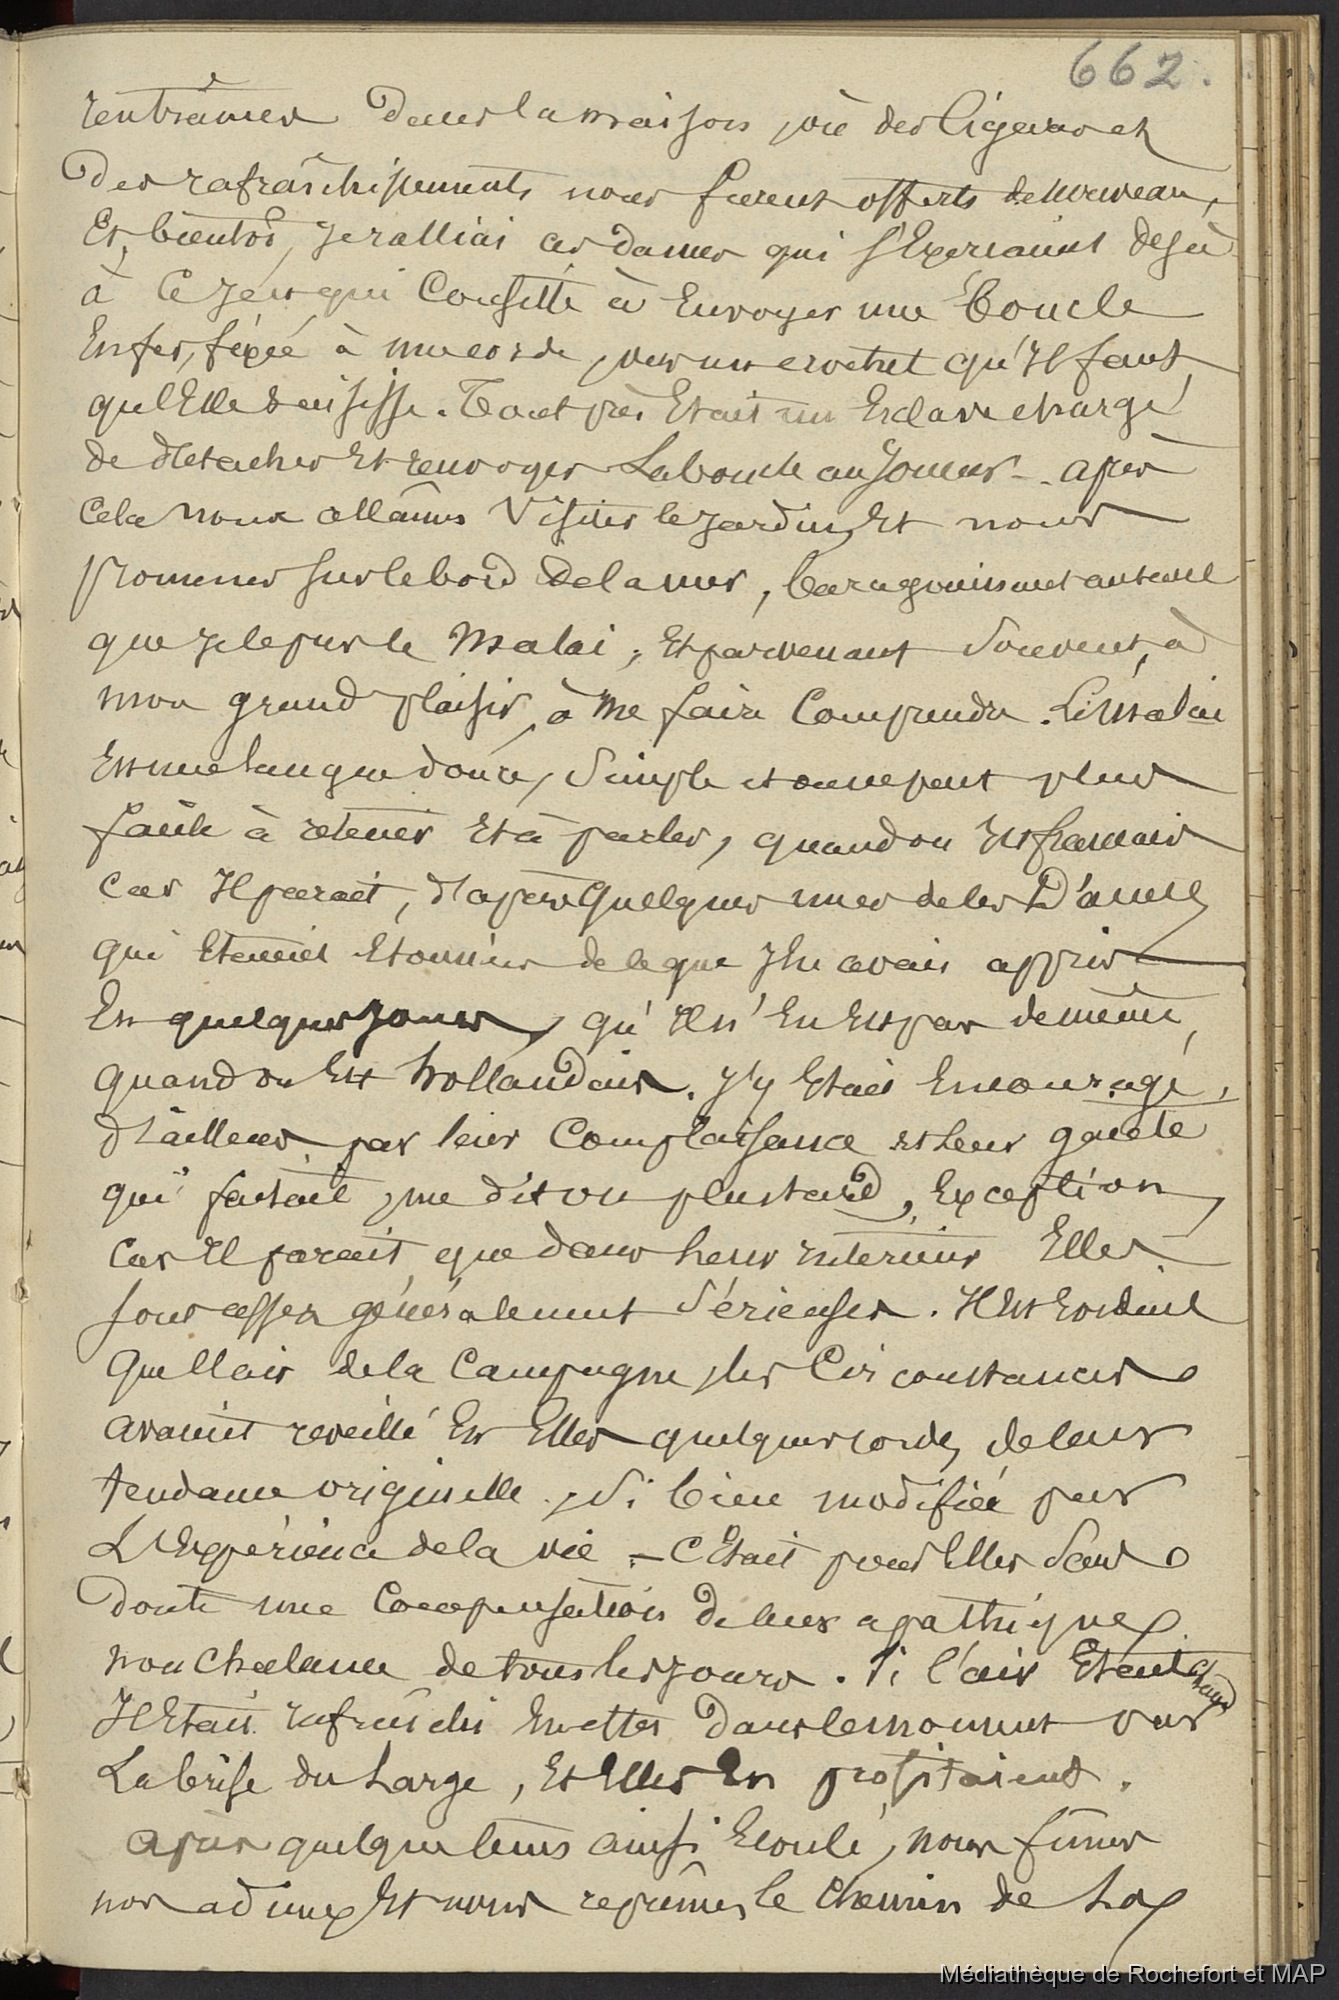 662.
rentrâmes dans la maison, où des cigares et
des rafraîchissements nous furent offerts de nouveau,
Et bientôt, je ralliai ces dames qui s'Exerçaient dejà
à ce jeu qui Consiste à Envoyer une boucle
En fer, fixée à une corde, vers un crochet qu'Il faut
qu'Elle saisisse. Tout près Etait un Esclave chargé
de détacher Et renvoyer La boucle au Joueur - après
cela nous allâmes Visiter le jardin, Et nous
promener sur le bord de la mer, baragouinant autant
que je le pus le Malai, Et parvenant souvent, à
mon grand plaisir, à me faire Comprendre. Le Malai
Est une langue douce, Simple et on ne peut plus
facile à retenir Et à parler, quand on Est français
car Il parait, d'après quelques unes de ces Dames
qui Etaient Etonnées de ce que J'en avais appris
En quelques jours, qu'Il n'En Est pas de même,
quand on Est hollandais. J'y Etais Encouragé,
d'ailleurs par leur Complaisance et leur gaieté
qui faisait, me dit on plus tard, Exception,
Car Il parait que dans leur intérieur Elles
sont assez généralement Sérieuses. Il Est Evident
que l'air de la Campagne, les Circonstances
avaient reveillé En Elles quelques cordes, de leur
tendance originelle, si bien modifiée par
L'Expérience de la vie - C'Etait pour Elles Sans
doute une Compensation de leur apathique
nonchalance de tous les jours. Si l'air Etait chaud
Il Etait rafraîchi En effet dans le moment par
La brise du Large, Et Elles En profitaient.
après quelque tems ainsi Ecoulé, nous fîmes
nos adieux Et nous reprîmes le chemin de La
Médiathèque de Rochefort et MAP